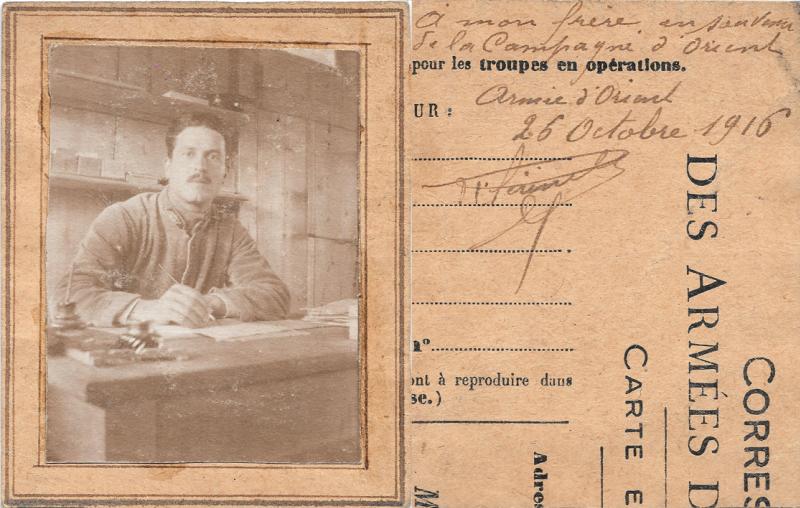 À mon frère en souvenir
de la Campagne d'Orient
pour les troupes en opérations.
UR :
Armée d'Orient
26 Octobre 1916
n°
ont à reproduire dans
se.)
Adres
M
CARTE E
DES ARMÉES D
CORRES